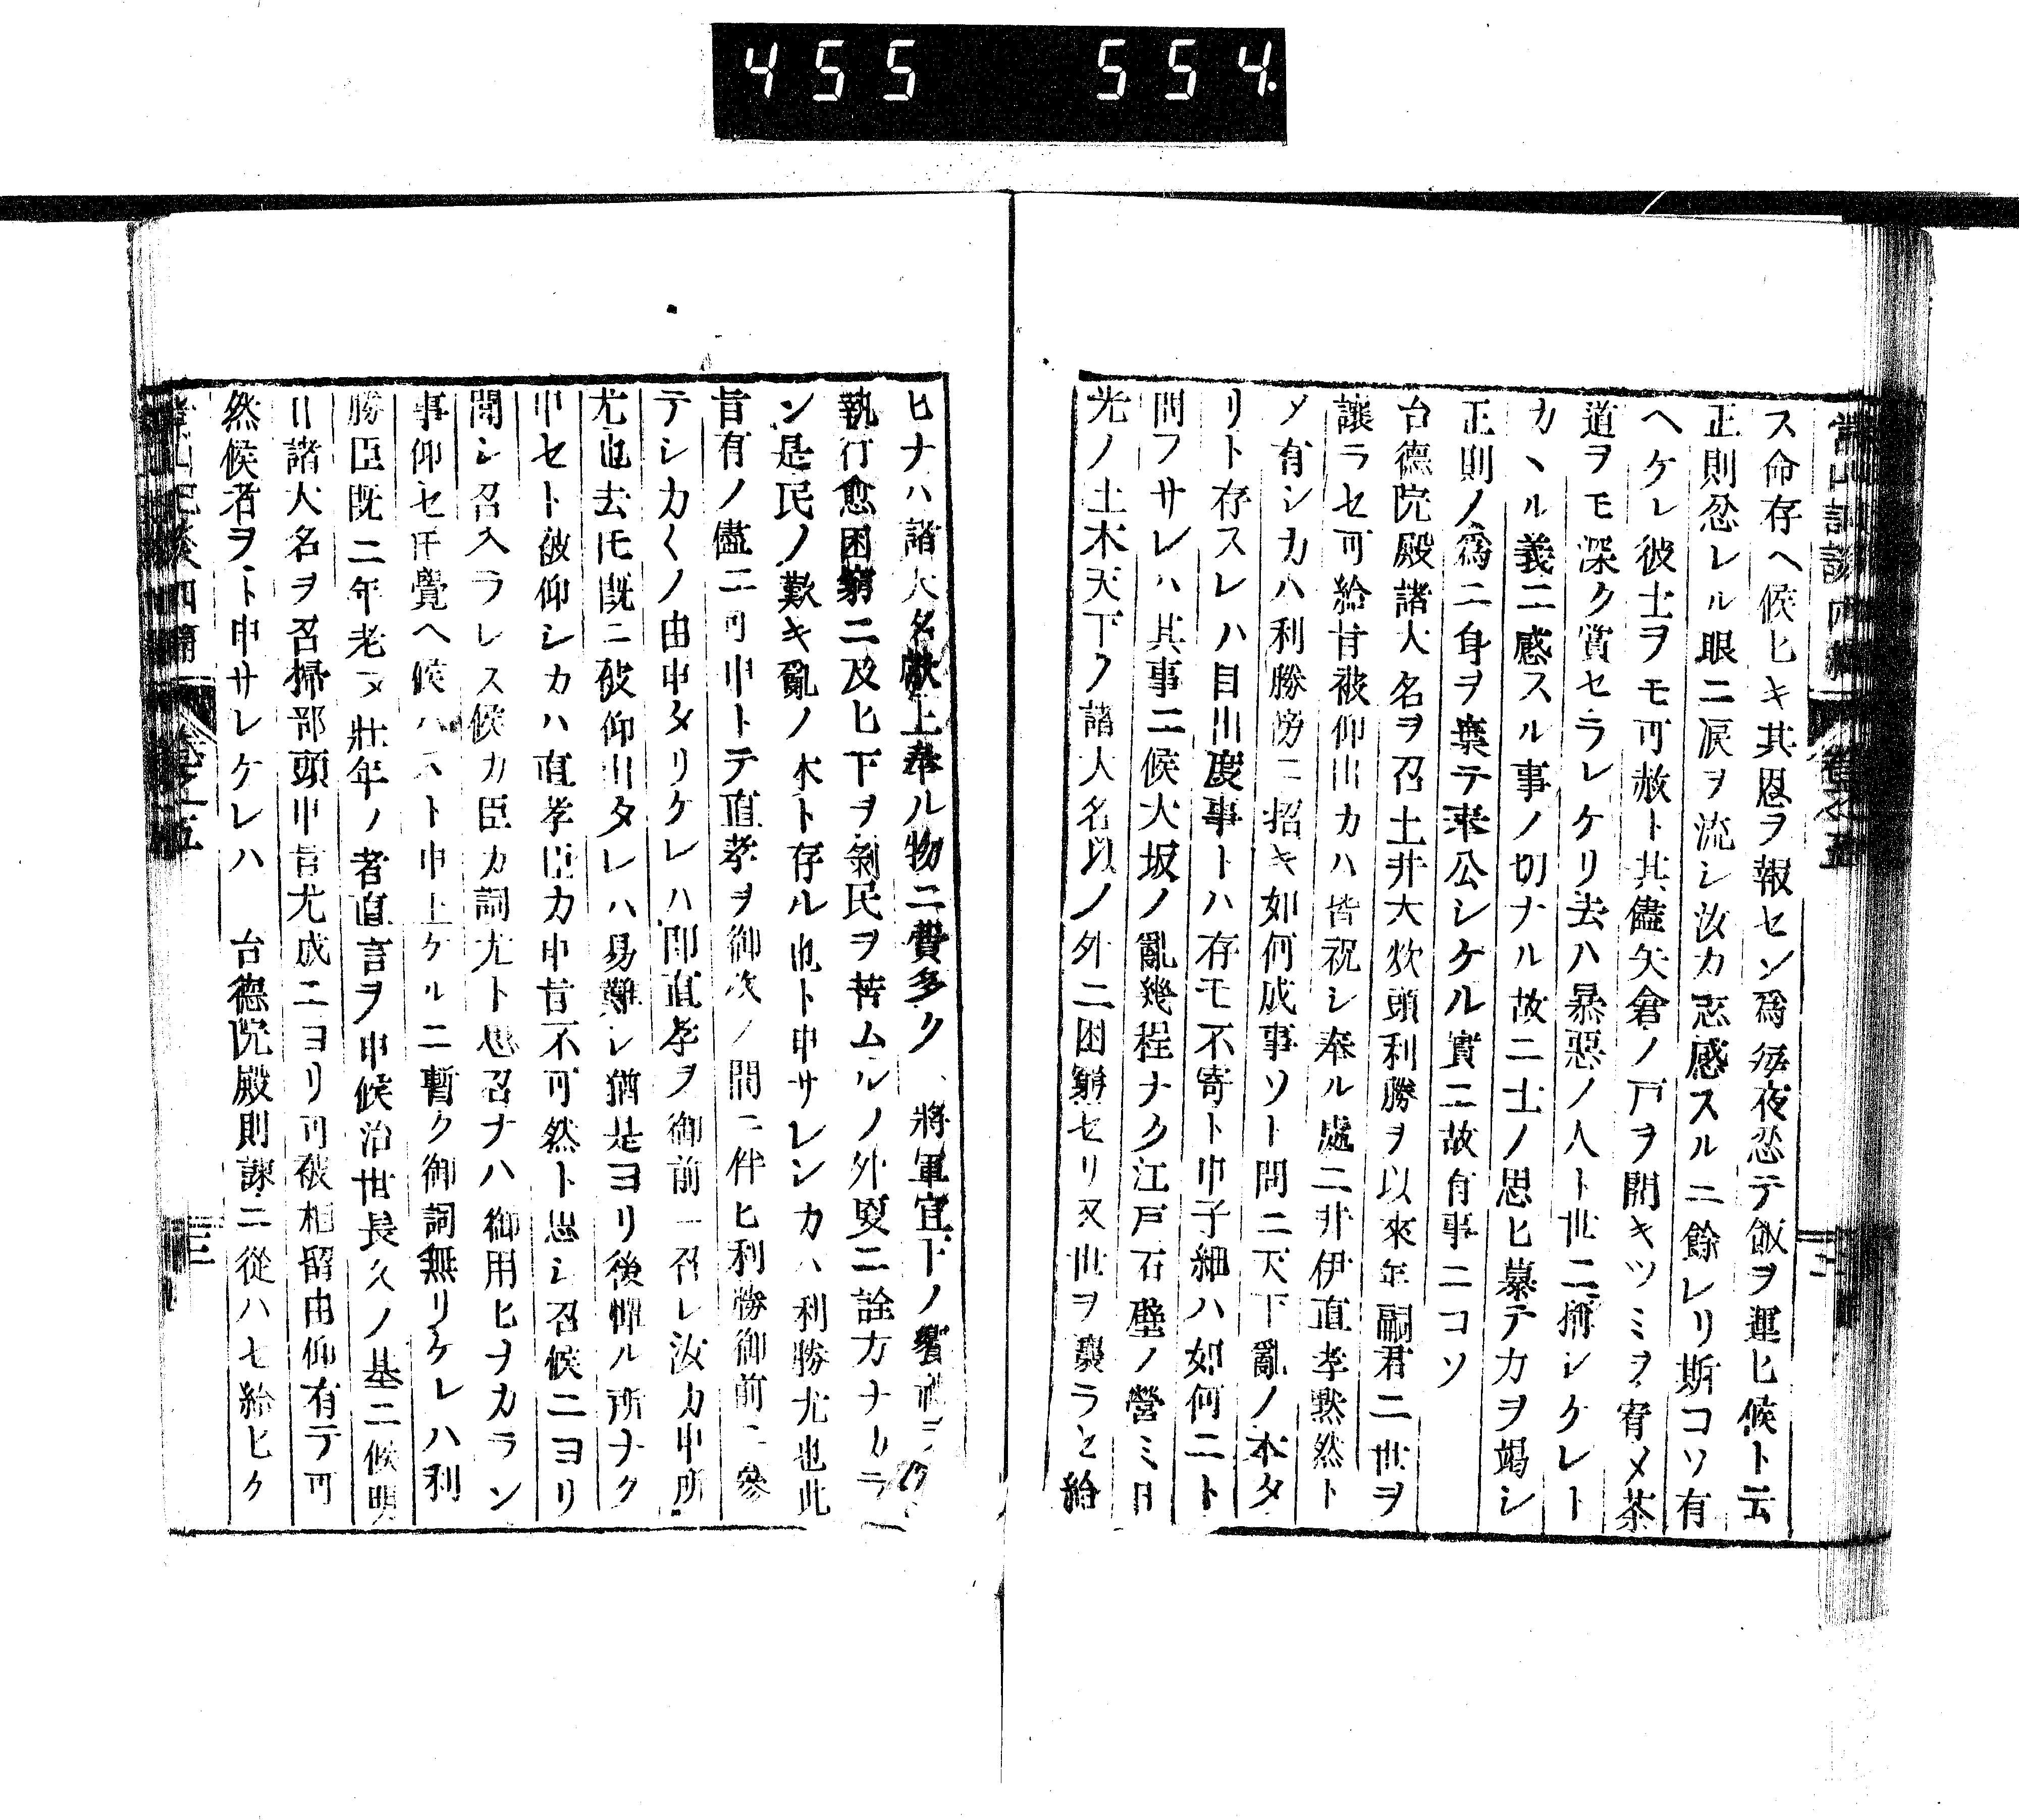 455 554.
常山記談四編 卷之五
ス命存ヘ候ヒキ其恩ヲ報セン爲每夜忍テ飯ヲ運ヒ候ト云
正則忍レル眼ニ淚ヲ流シ汝カ志感スルニ餘レリ斯コソ有
ヘケレ彼士ヲモ可赦ト其儘矢倉ノ戸ヲ開キツミヲ宥メ茶
道ヲモ深ク賞セラレケリ去ハ暴惡ノ人ト世ニ稱シケレト
カヽル義ニ感スル事ノ切ナル故ニ士ノ思ヒ慕テ力ヲ竭シ
正則ノ爲ニ身ヲ棄テ奉公シケル實ニ故有事ニコソ
台德院殿諸大名ヲ召土井大炊頭利勝ヲ以來年嗣君ニ世ヲ
讓ラセ可給旨被仰出カハ皆祝シ奉ル處ニ井伊直孝默然ト
メ有シカハ利勝傍ニ招キ如何成事ソト問ニ天下亂ノ本タ
リト存スレハ目出度事トハ存モ不寄ト申子細ハ如何ニト
問フサレハ其事ニ候大坂ノ亂幾程ナク江戸石壁ノ營ミ日
光ノ土木天下ノ諸大名以ノ外ニ困窮セリ又世ヲ襲ラセ給
ヒナハ諸大名獻上奉ル物ニ費多ク 將軍宣下ノ饗禮ヲ
執行愈困窮ニ及ヒ下ヲ剝民ヲ苦ムルノ外更ニ詮方ナカラ
ン是民ノ歎キ亂ノ本ト存ル也ト申サレシカハ利勝尤也此
旨有ノ儘ニ可申トテ直孝ヲ御次ノ間ニ伴ヒ利勝御前ニ參
テシカ〱ノ由申タリケレハ即直孝ヲ御前ニ召レ汝カ申所
尤也去𪜈既ニ被仰出タレハ易難シ猶是ヨリ後憚ル所ナク
申セト被仰シカハ直孝臣カ申旨不可然ト思シ召候ニヨリ
聞シ召入ラレス候カ臣カ詞尤ト思召ナハ御用ヒヲカラン
事仰セ𪜈覺ヘ候ハスト申上ケルニ暫ク御詞無リケレハ利
勝臣既ニ年老ヌ壯年ノ者直言ヲ申候治世長久ノ基ニ候明
日諸大名ヲ召掃部頭申旨尤成ニヨリ可被相留由仰有テ可
然候者ヲト申サレケレハ 台德院殿則諫ニ從ハセ給ヒク
常山記談四編 卷之五 三